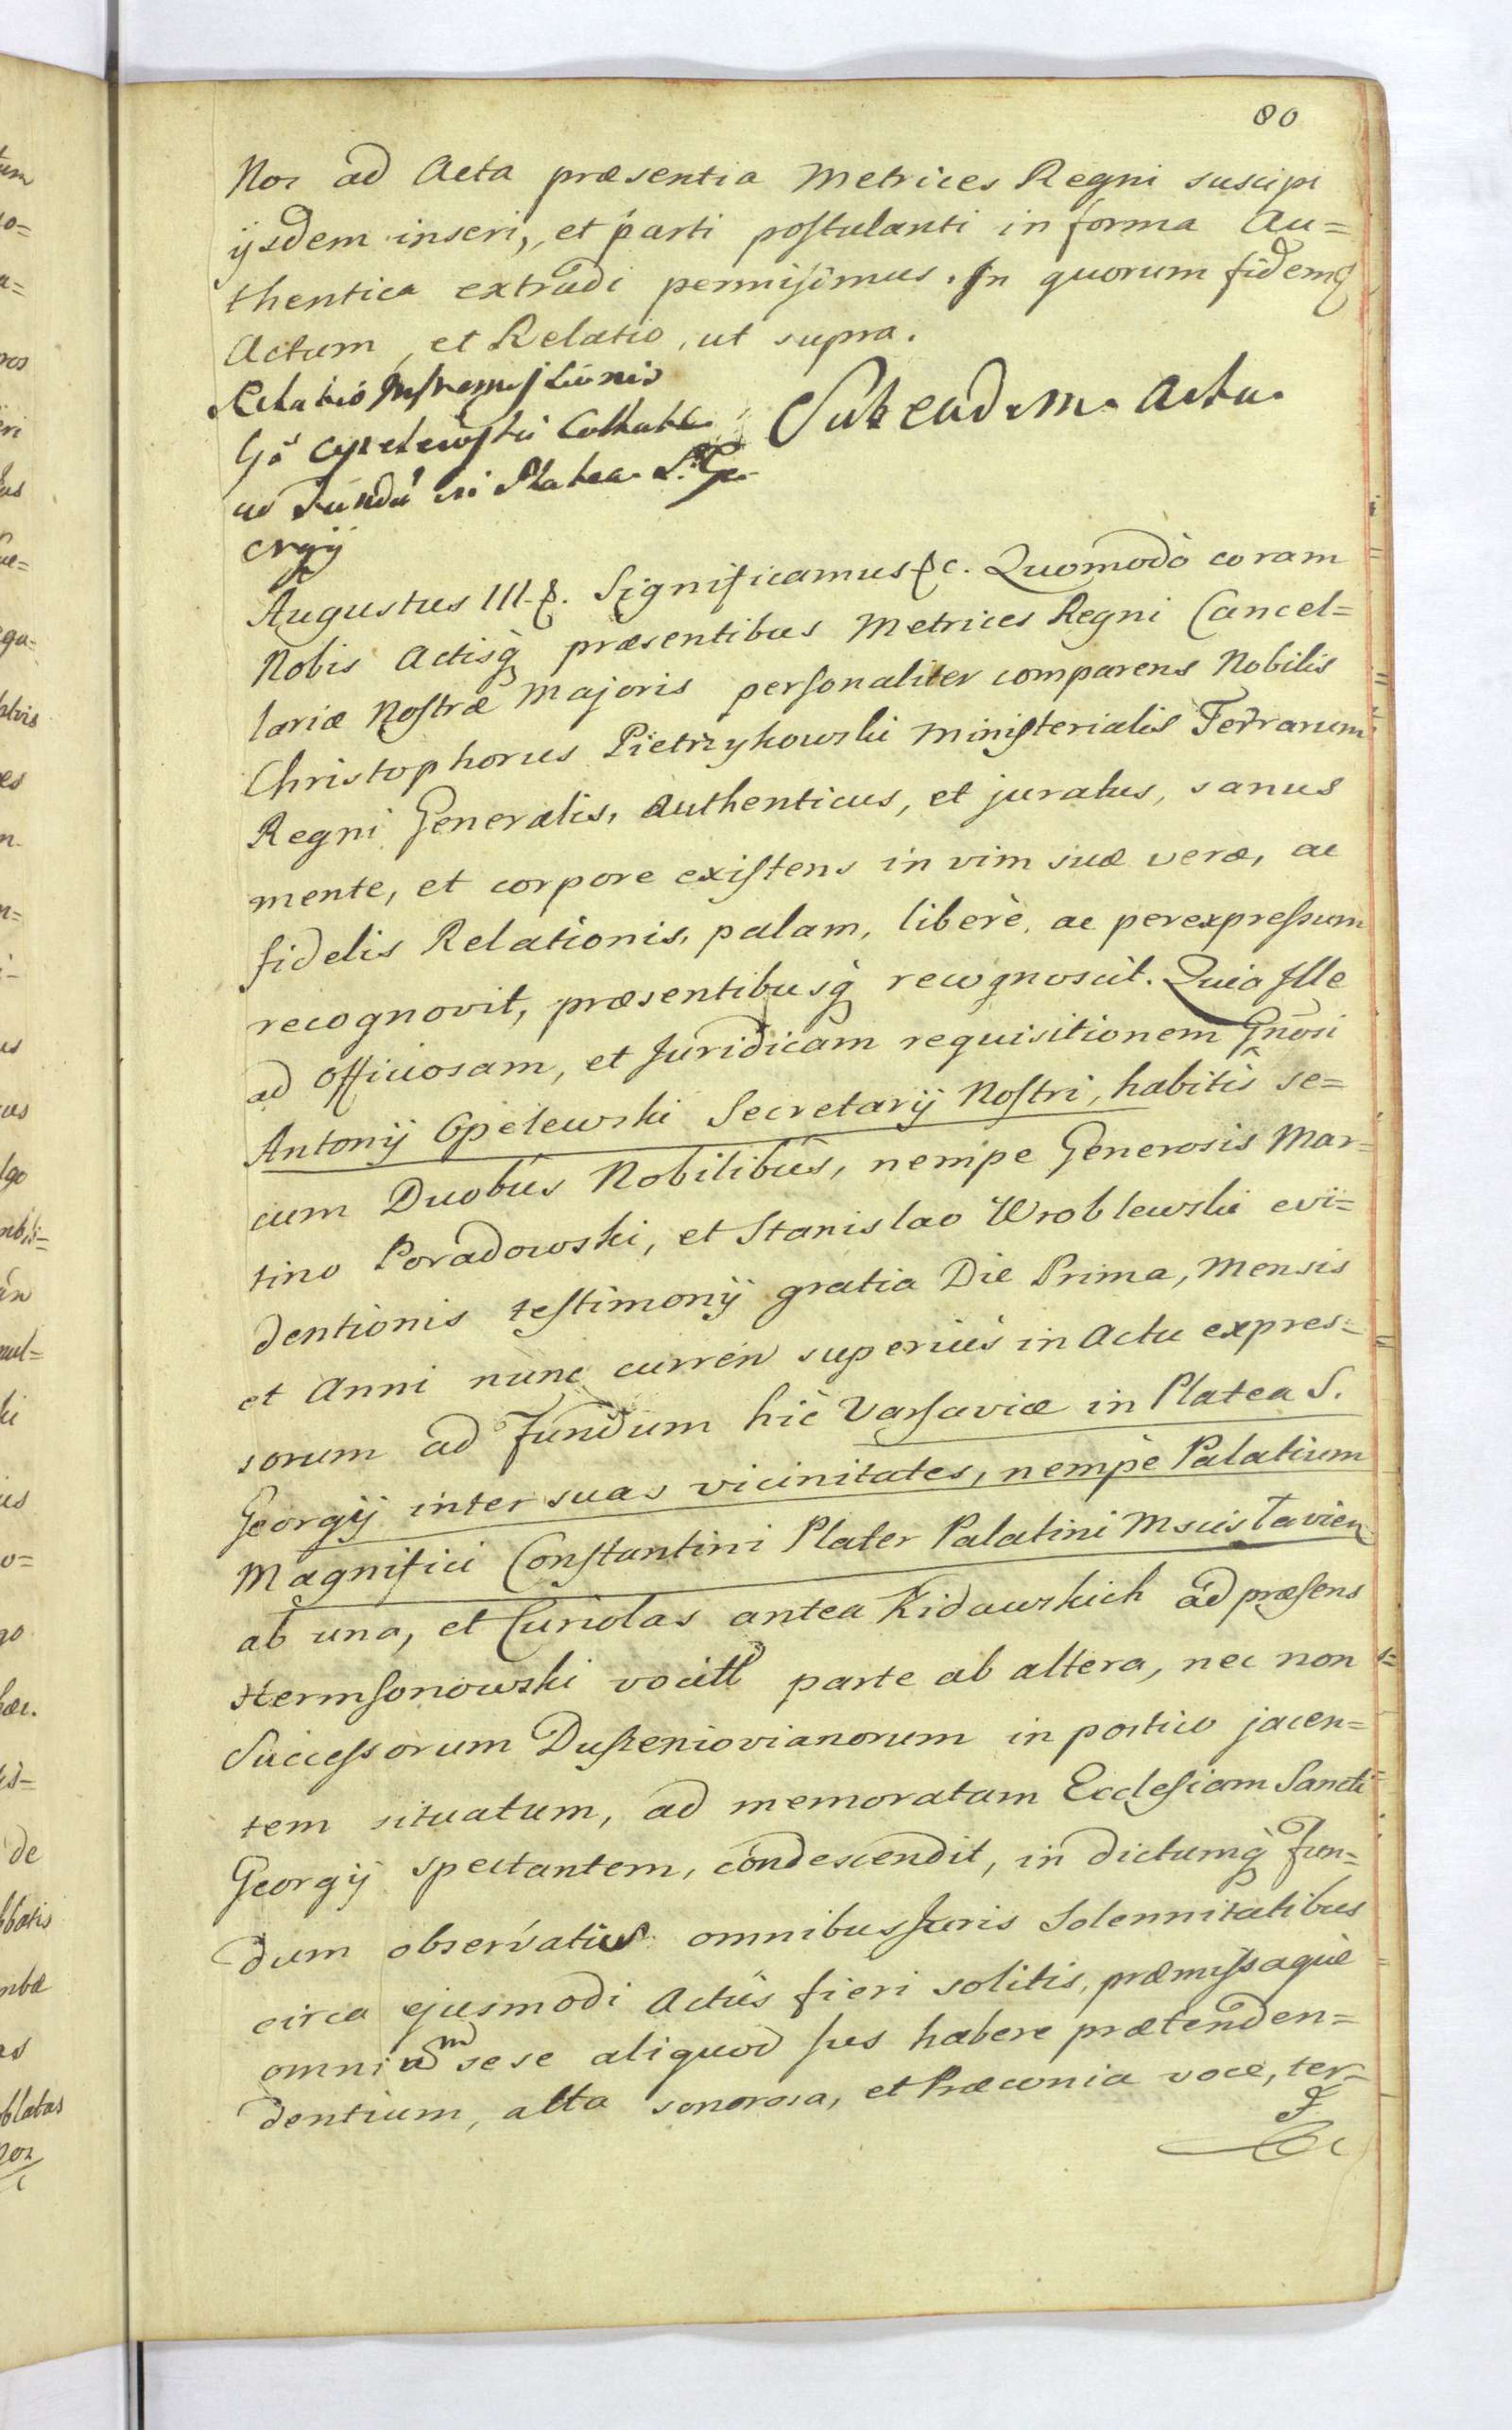 80
Nos ad Acta præsentia Metrices Regni suscipi
ijsdem inseri, et parti postulanti in forma Au=
thentica extradi permisimus. In quorum fidem
Actum, et Relatio, ut supra.
Relatio Intromissionis
Gsi Opelewski
ad Fundū in Platea S. Ge
orgij
Sub eadem Actu.
Augustus III. Significamus &c. Quomodò coram
Nobis Actisq̀ præsentibus Metrices Regni Cancel=
lariæ Nostræ Majoris personaliter comparens Nobilis
Christophorus Pietrzykowski Ministerialis Terrarum
Regni Generalis, Authenticus, et juratus, sanus
mente, et corpore existens in vim suæ veræ, ac
fidelis Relationis, palam, liberè, ac per expressum
recognovit, præsentibusq̀ recognoscit. Quia Ille
ad officiosam, et Juridicam requisitionem Gnōsi
Antonij Opelewski Secretarij Nostri, habitis se=
cum Duobus Nobilibus, nempe Generosis Mar=
tino Poradowski, et Stanislao Wroblewski evi=
dentionis testimonij gratia Die Prima, Mensis
et Anni nunc curren superius in Actu expres=
sorum ad Fundum hic Varsaviæ in Platea S.
Georgij inter suas vicinitates, nempè Palatium
Magnifici Constantini Plater Palatini Mscislavien
ab una, et Curiolas antea Kidawskich ad præsens
Hermsonowski vocitt parte ab altera, nec non
Successorum Duszeniovianorum in postico jacen=
tem situatum, ad memoratam Ecclesiam Sancti
Georgij spectantem, condescendit, in dictumq̀ Fun=
dum observatis omnibus Juris Solennitatibus
circa ejusmodi Actus fieri solitis, præmissaque
omnium sese aliquod Jus habere prætenden=
dentium, alta sonorosa, et Præconia voce, ter=